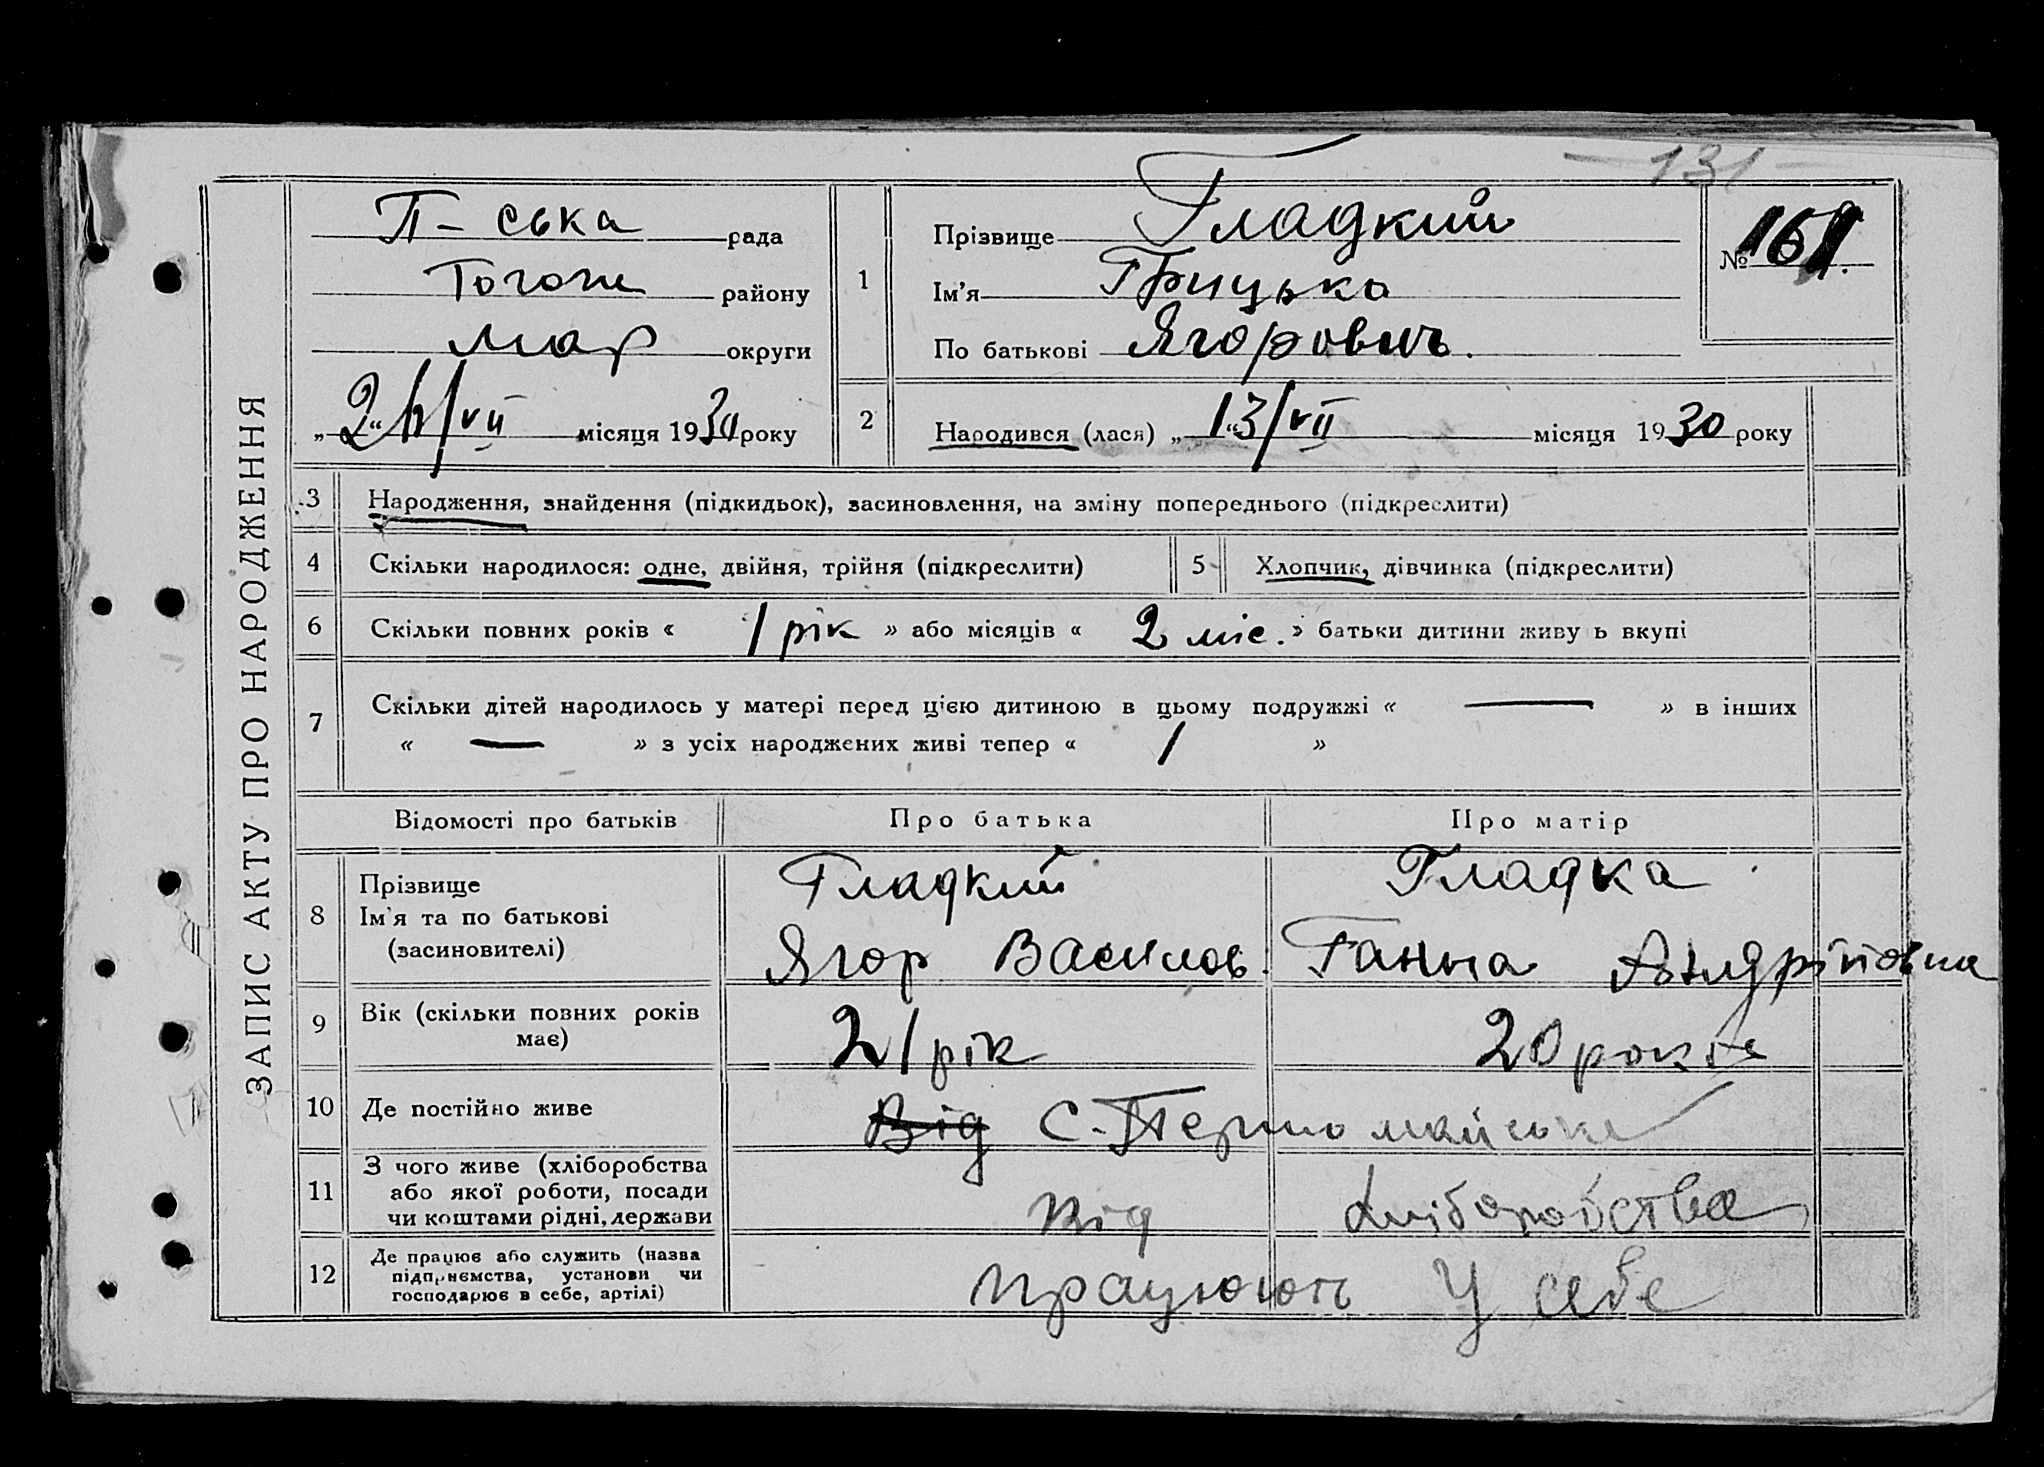 — 131 —
ЗАПИС АКТУ ПРО НАРОДЖЕННЯ
П-ська рада
району
мар округи
„2“ /VII місяця 1930 року
1 Прізвище Гладкий
Ім'я Грицько
По батькові Ягорович.
№ 161.
2 Народився (лася) „13“/VII місяця 1930 року
3 Народження, знайдення (підкидьок), засиновлення, на зміну попереднього (підкреслити)
4 Скільки народилося: одне, двійня, трійня (підкреслити)
5 Хлопчик, дівчинка (підкреслити)
6 Скільки повних років « 1 рік » або місяців « 2 міс. » батьки дитини живу ь вкупі
7 Скільки дітей народилось у матері перед цією дитиною в цьому подружжі « — » в інших
« — » з усіх народжених живі тепер « 1 »
Відомості про батьків Про батька Про матір
8 Прізвище
Ім'я та по батькові
(засиновителі)
Гладкий
Ягор Васильов.
Гладка
Ганна Андріївна
9 Вік (скільки повних років
має)
21 рік 20 років
10 Де постійно живе Від С. Першомайське
11 З чого живе (хліборобства
або якої роботи, посади
чи коштами рідні, держави
Від хліборобства
12 Де працює або служить (назва
підприємства, установи чи
господарює в себе, артілі)
працюють у себе